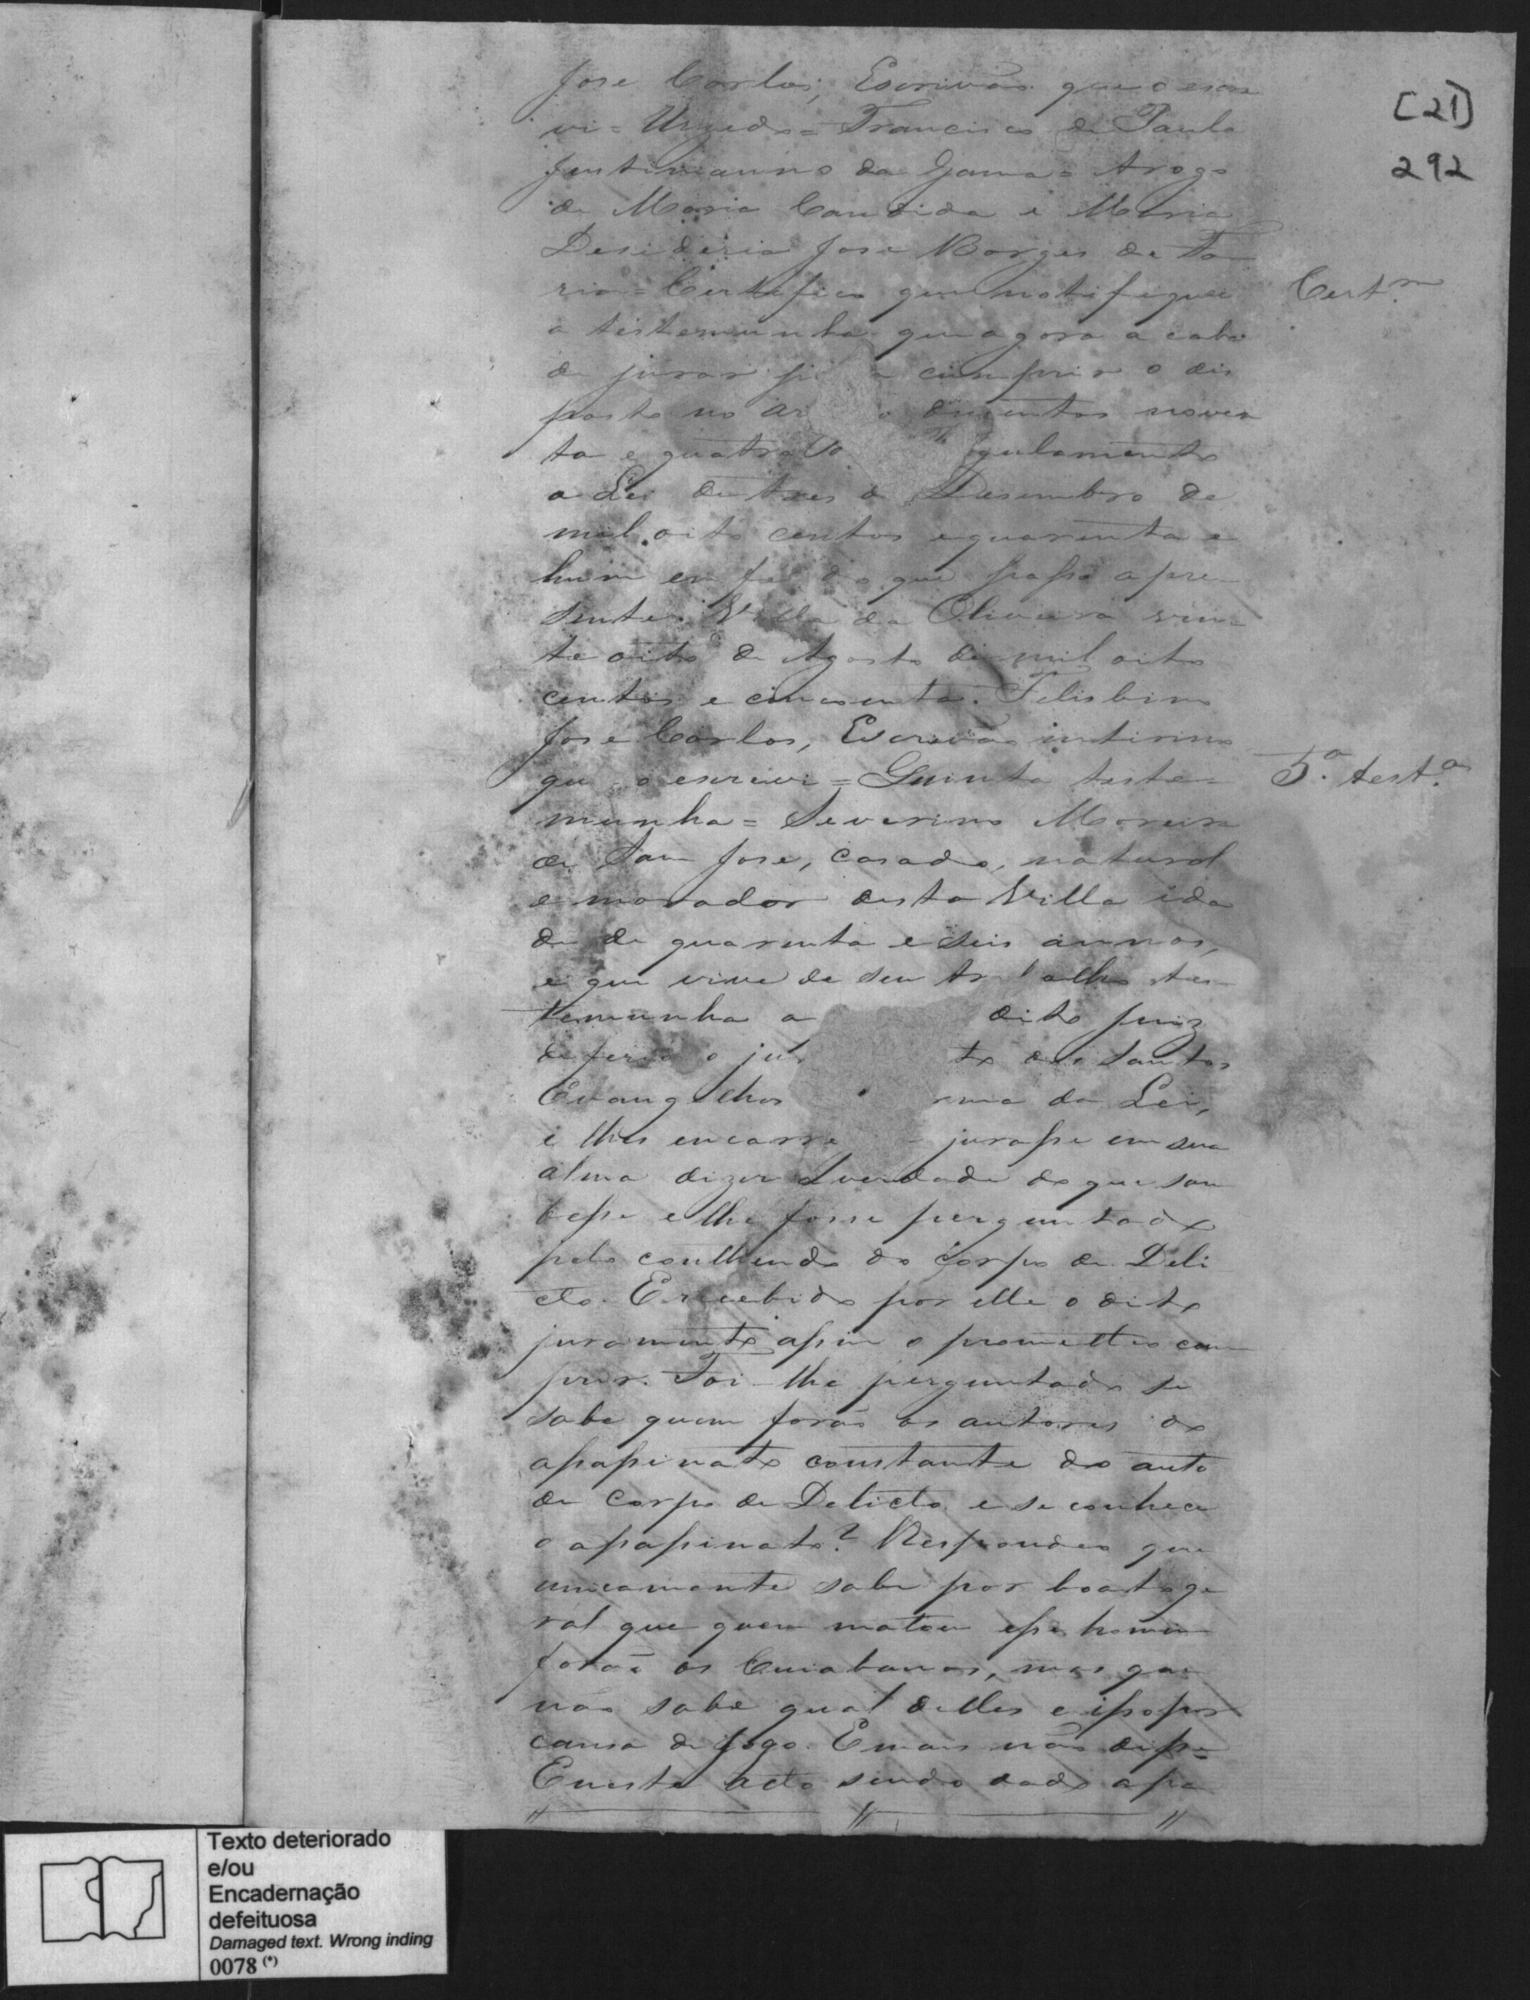 [21]
292
Jose Carlos, Escrivão que o escre
vi = Azevedo = Francisco de Paula
Justinianno da Gama = Arogo
de Maria Candida e Maria
Desideria Jose Borges de Fa
ria = Certefico que notifiquei
Cert.m
a testemunha que agora acaba
de jurar a cumprir o dis
posto no ar o duzentos noven
ta e quatro do gulamento
a Lei de tres de Desembro de
mil oito centos e quarenta e
hum em fe do que passo apre
sente. Villa da Oliveira vin
te oito de Agosto de mil oito
centos e cincoenta. Felisbino
Jose Carlos, Escrivão interino
que o escrevi = Quinta teste=
5.a test.a
munha = Severino Moreira
de Sam Jose, casado, natural
e morador desta Villa ida
de de quarenta e seis annos,
e que vive de seu trabalho tes
temunha a dito Juiz
deferio o ju to dos Santos
Evangelhos rma da Lei,
e lhes encarre jurasse em sua
alma dizer a verdade do que sou
besse e lhe fosse perguntado
pelo conthendo do Corpo de Deli
cto. E recebido por elle o dito
juramento assim o prometteo com
prir. Foi-lhe perguntado se
sabe quem forão os autores do
assassinato constante do auto
de Corpo de Delicto e se conhece
o assassinato? Respondeo que
unicamente sabe por boato ge
ral que quem matou esse homem
forão os Cuiabanos, mas que
não sabe qual delles e isso por
causa de jogo. E mais não disse=
E neste acto sendo dada a pa